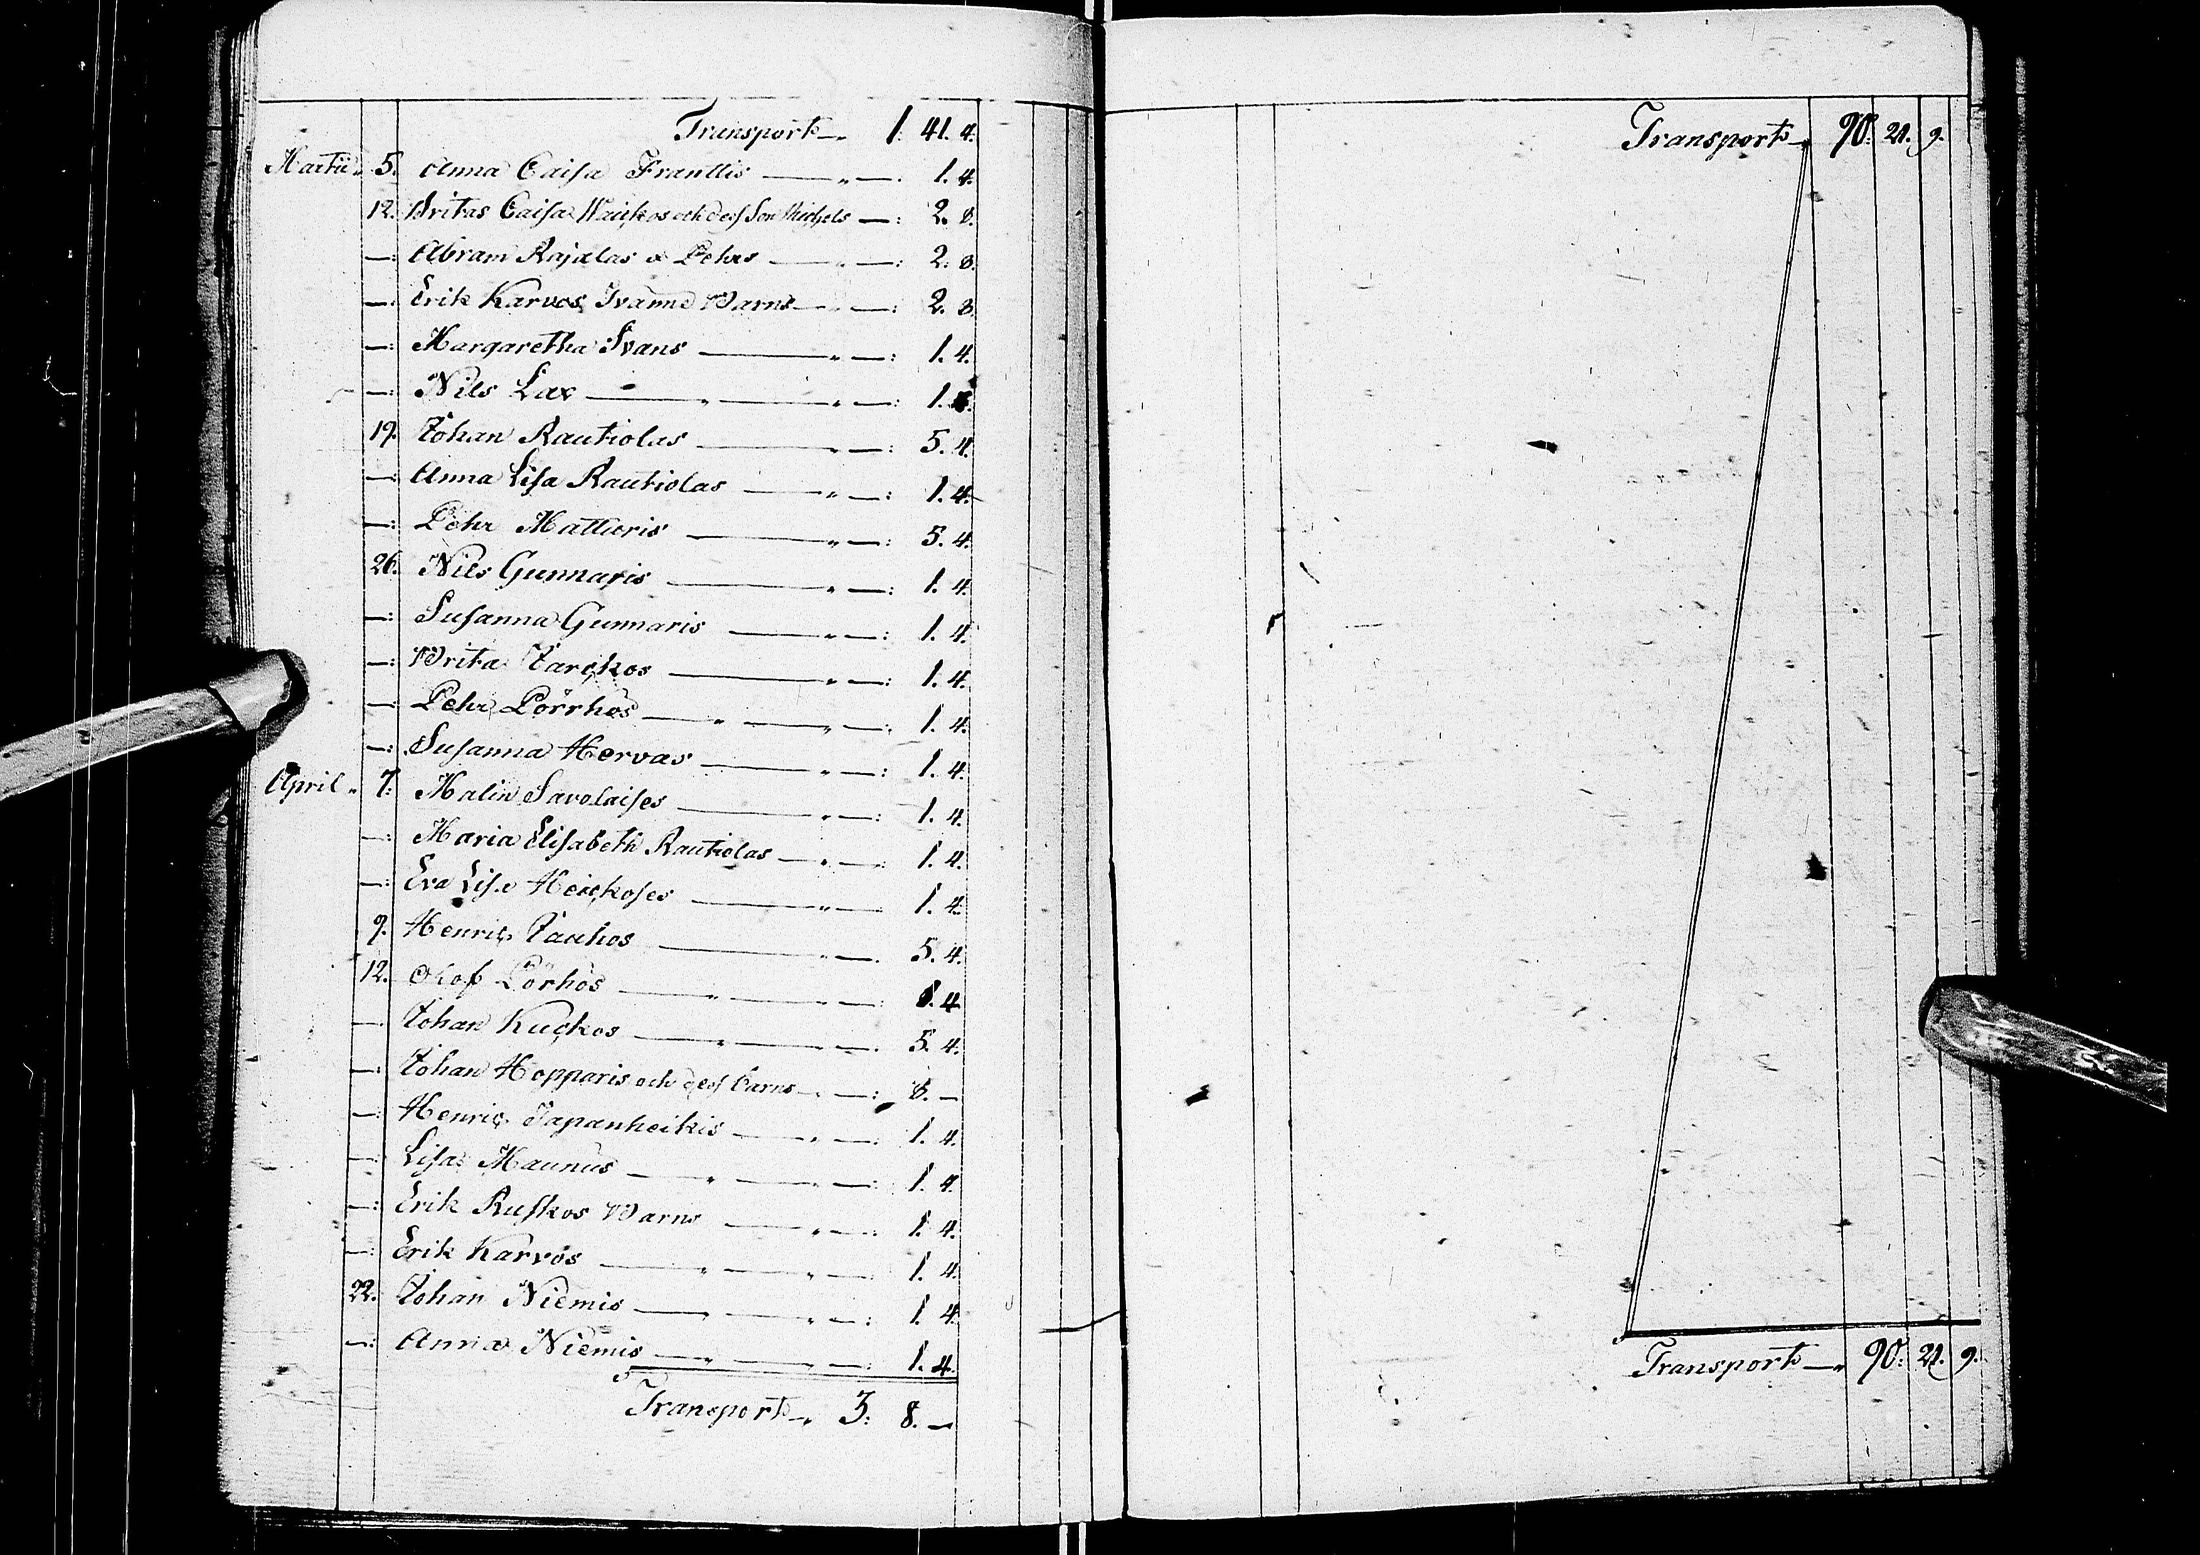 Transport 1. 41. 4.
Martii 5. Anna Caisa Franttis 1. 4.
12. Britas Caisa och des Son Michels 2. 8.
— Abram Rajalas o Pehrs 2. 8.
— Erik Karvos Tvänne Barns 2. 8.
— Margaretha Ivans 1. 4.
— Nils Lax 1. 4.
19. Johan Rautiolas 5. 4.
— Anna Lisa Rautiolas 1. 4.
— Pehr Mattieris 5. 4.
26. Nils Gunnaris 1. 4.
— Susanna Gunnaris 1. 4.
— Brita Jarckos 1. 4.
— Pehr Pörrhös 1. 4.
— Susanna Hervas 1. 4.
April 7. Malin Savolaises 1. 4.
— Maria Elisabeth Rautiolas 1. 4.
— Eva Lisa Heickoses 1. 4.
9. Henric Jauhos 5. 4.
12. Olof Pörhös 1. 4
— Johan Kuckos 5. 4.
— Johan Hopparis och des Barns 8. —
— Henric Japanheikis 1. 4.
— Lisa Maunus 1. 4.
— Erik Ruskos Barns 1. 4.
— Erik Karvos 1. 4.
22. Johan Niemis 1. 4.
— Anna Niemis 1. 4.
Transport 3. 8. —
Transport 90. 21. 9.
Transport 90. 21. 9.